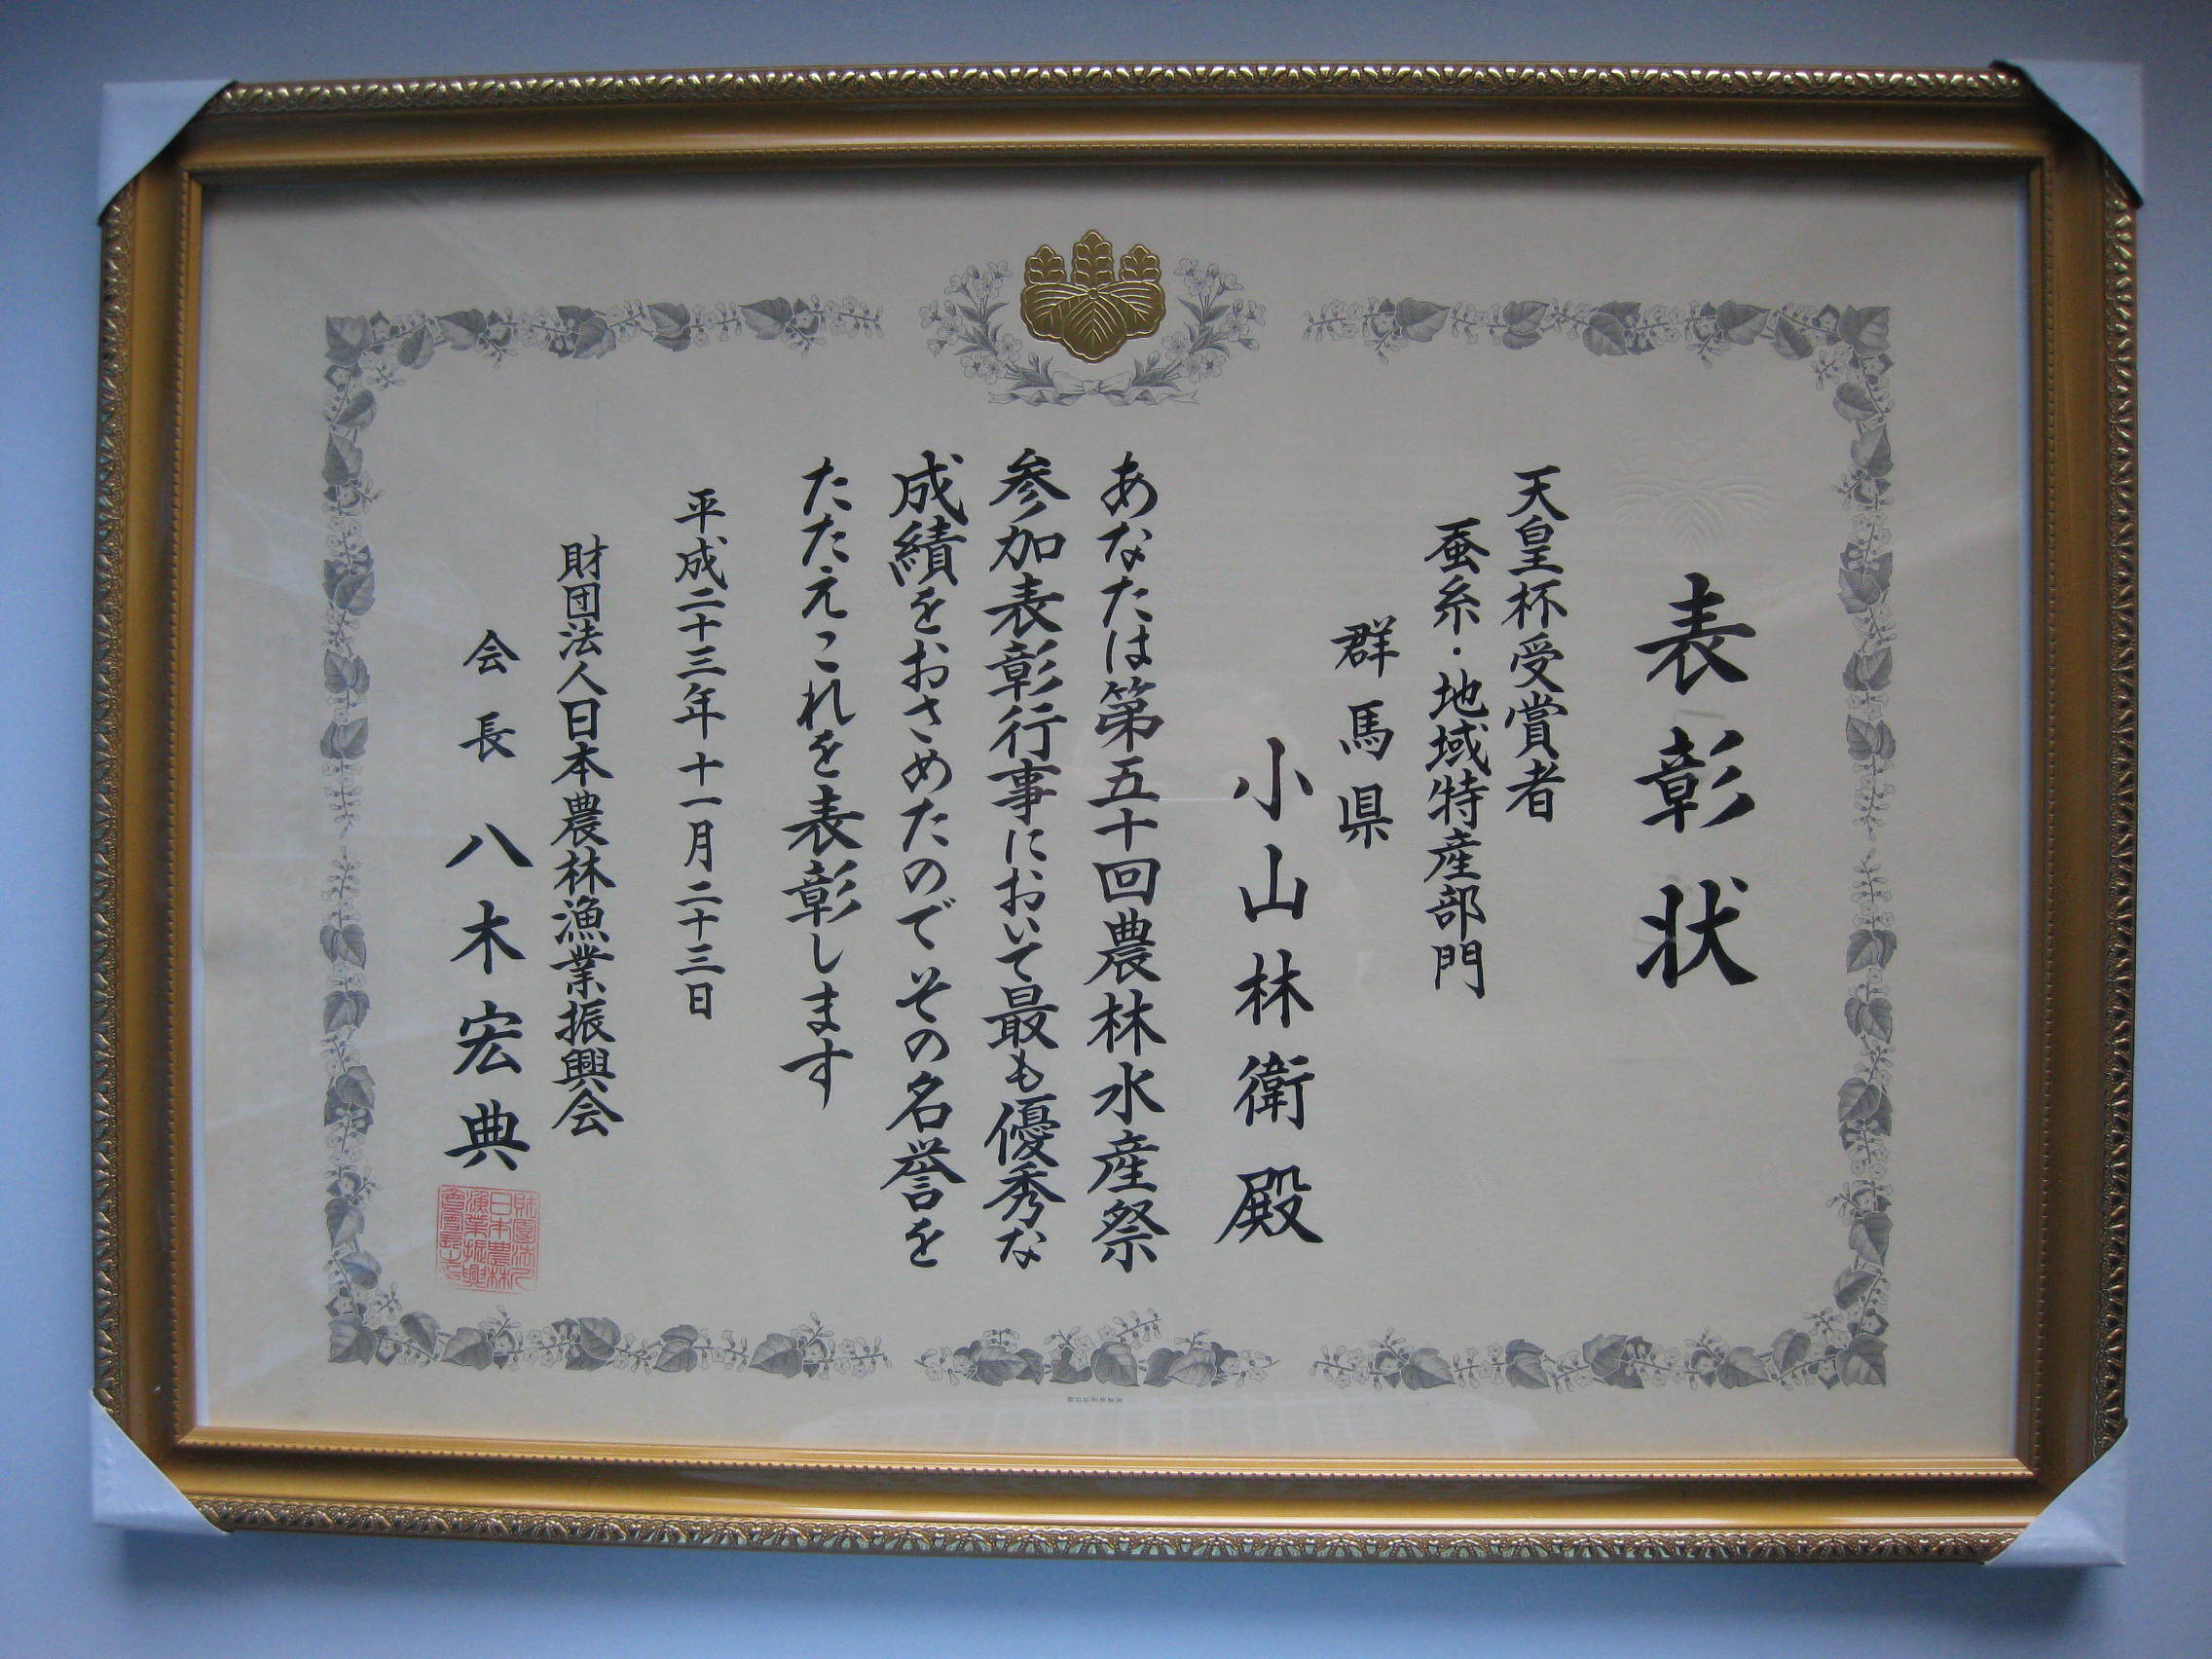 表彰状
天皇杯受賞者
蚕糸・地域特産部門
群馬県
小山林衛殿
あなたは第五十回農林水産祭
参加表彰行事において最も優秀な
成績をおさめたのでその名誉を
たたえこれを表彰します
平成二十三年十一月二十三日
財団法人日本農林漁業振興会
会長 八木宏典